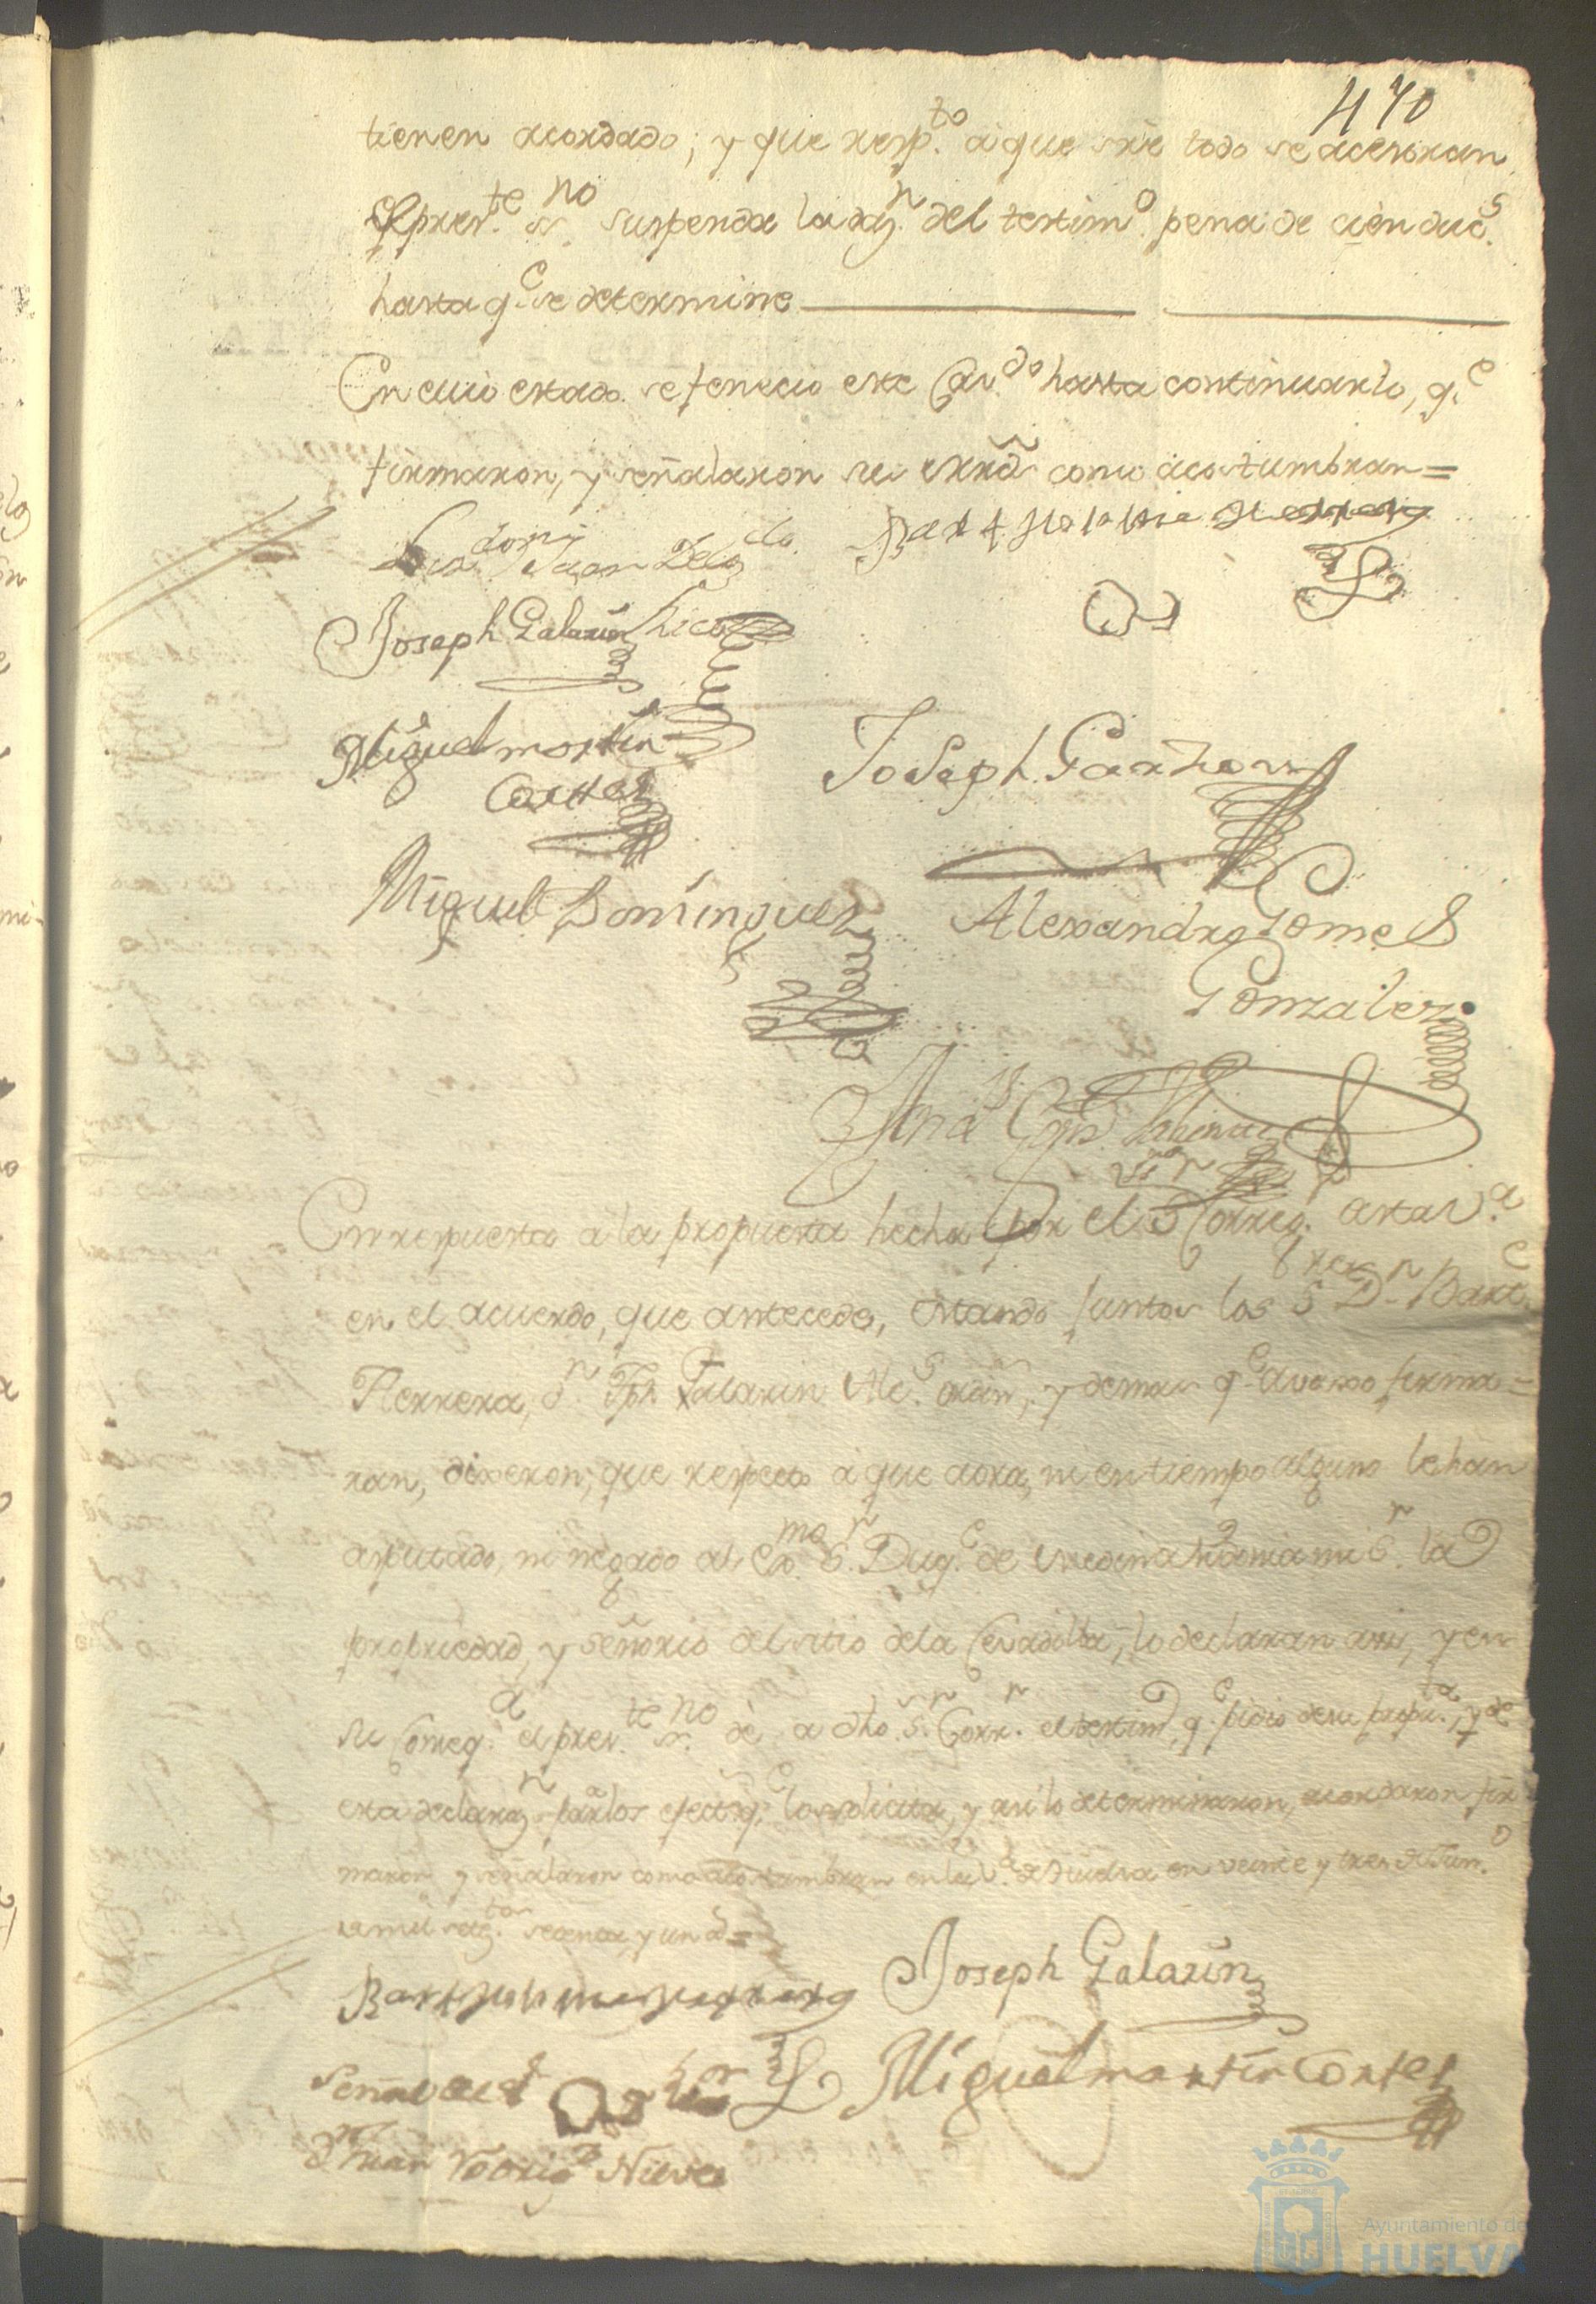 470
tienen acordado; y que resp.to a que sre todo se acesoran
el pres.te ss.no suspenda la dazn. del testim.o pena de cien duc.s
hasta q.e se determine
En cuio estado se fenecio este Cav.do hasta continuarlo, q.e
firmaron, y señalaron los srrs como acostumbran =
Juan Delg.do Bartholome Herrera
Joseph Galarin
Miguel martin
Cortes
Joseph Garzon
Miguel Dominguez Alexandro Gomes
Gonzalez
En respuesta a la propuesta hecha por el S.r Correg.r a esta v.a
en el acuerdo, que antecede, estando juntos los S.res D.n Bart.e
Herrera, d.n Jph. Galarin Alc.s ordin.s, y demas q.e avaxo firma=
ran, dixeron; que respecto a que aora, ni en tiempo alguno le han
disputado, ni negado al Ex.mo S.r Duq.e de Medina Sidonia mi S.r la
propriedad, y señorio del sitio de la Cevadilla, lo declaran assi, y en
su Conseq.a el pres.te ss.no dè a dho S.r Corr.r el testim.o, q.e pidio de su propu.ta, y de
esta declaraz.n para los efectos q.e lo solicita, y asi lo determinaron, acordaron fir
maron y señalaron como acostumbran en la v.a de Huelva en veinte y tres de Jun.o
de mil setez.tos sesenta y un a.s =
Bartholome Herrera Joseph Galarin
Señal de
Miguel martin Cortes
Juan Nieves
Ayuntamiento de
HUELVA